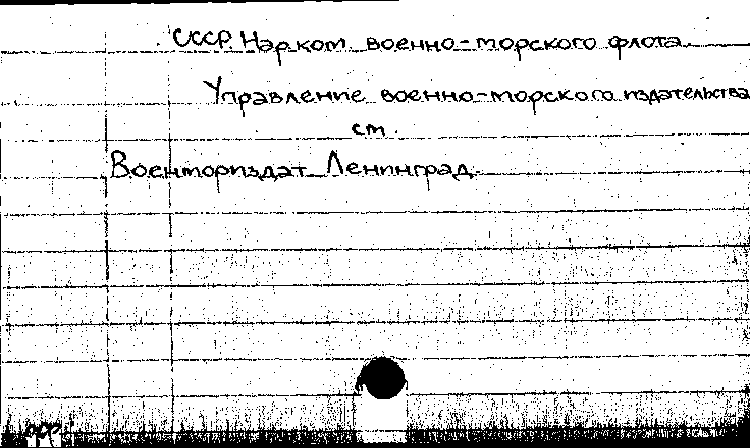 СССР. Нар. ком. военно-морского флота.
Управление военно-морского издательства
см.
Военториздат Ленинград.